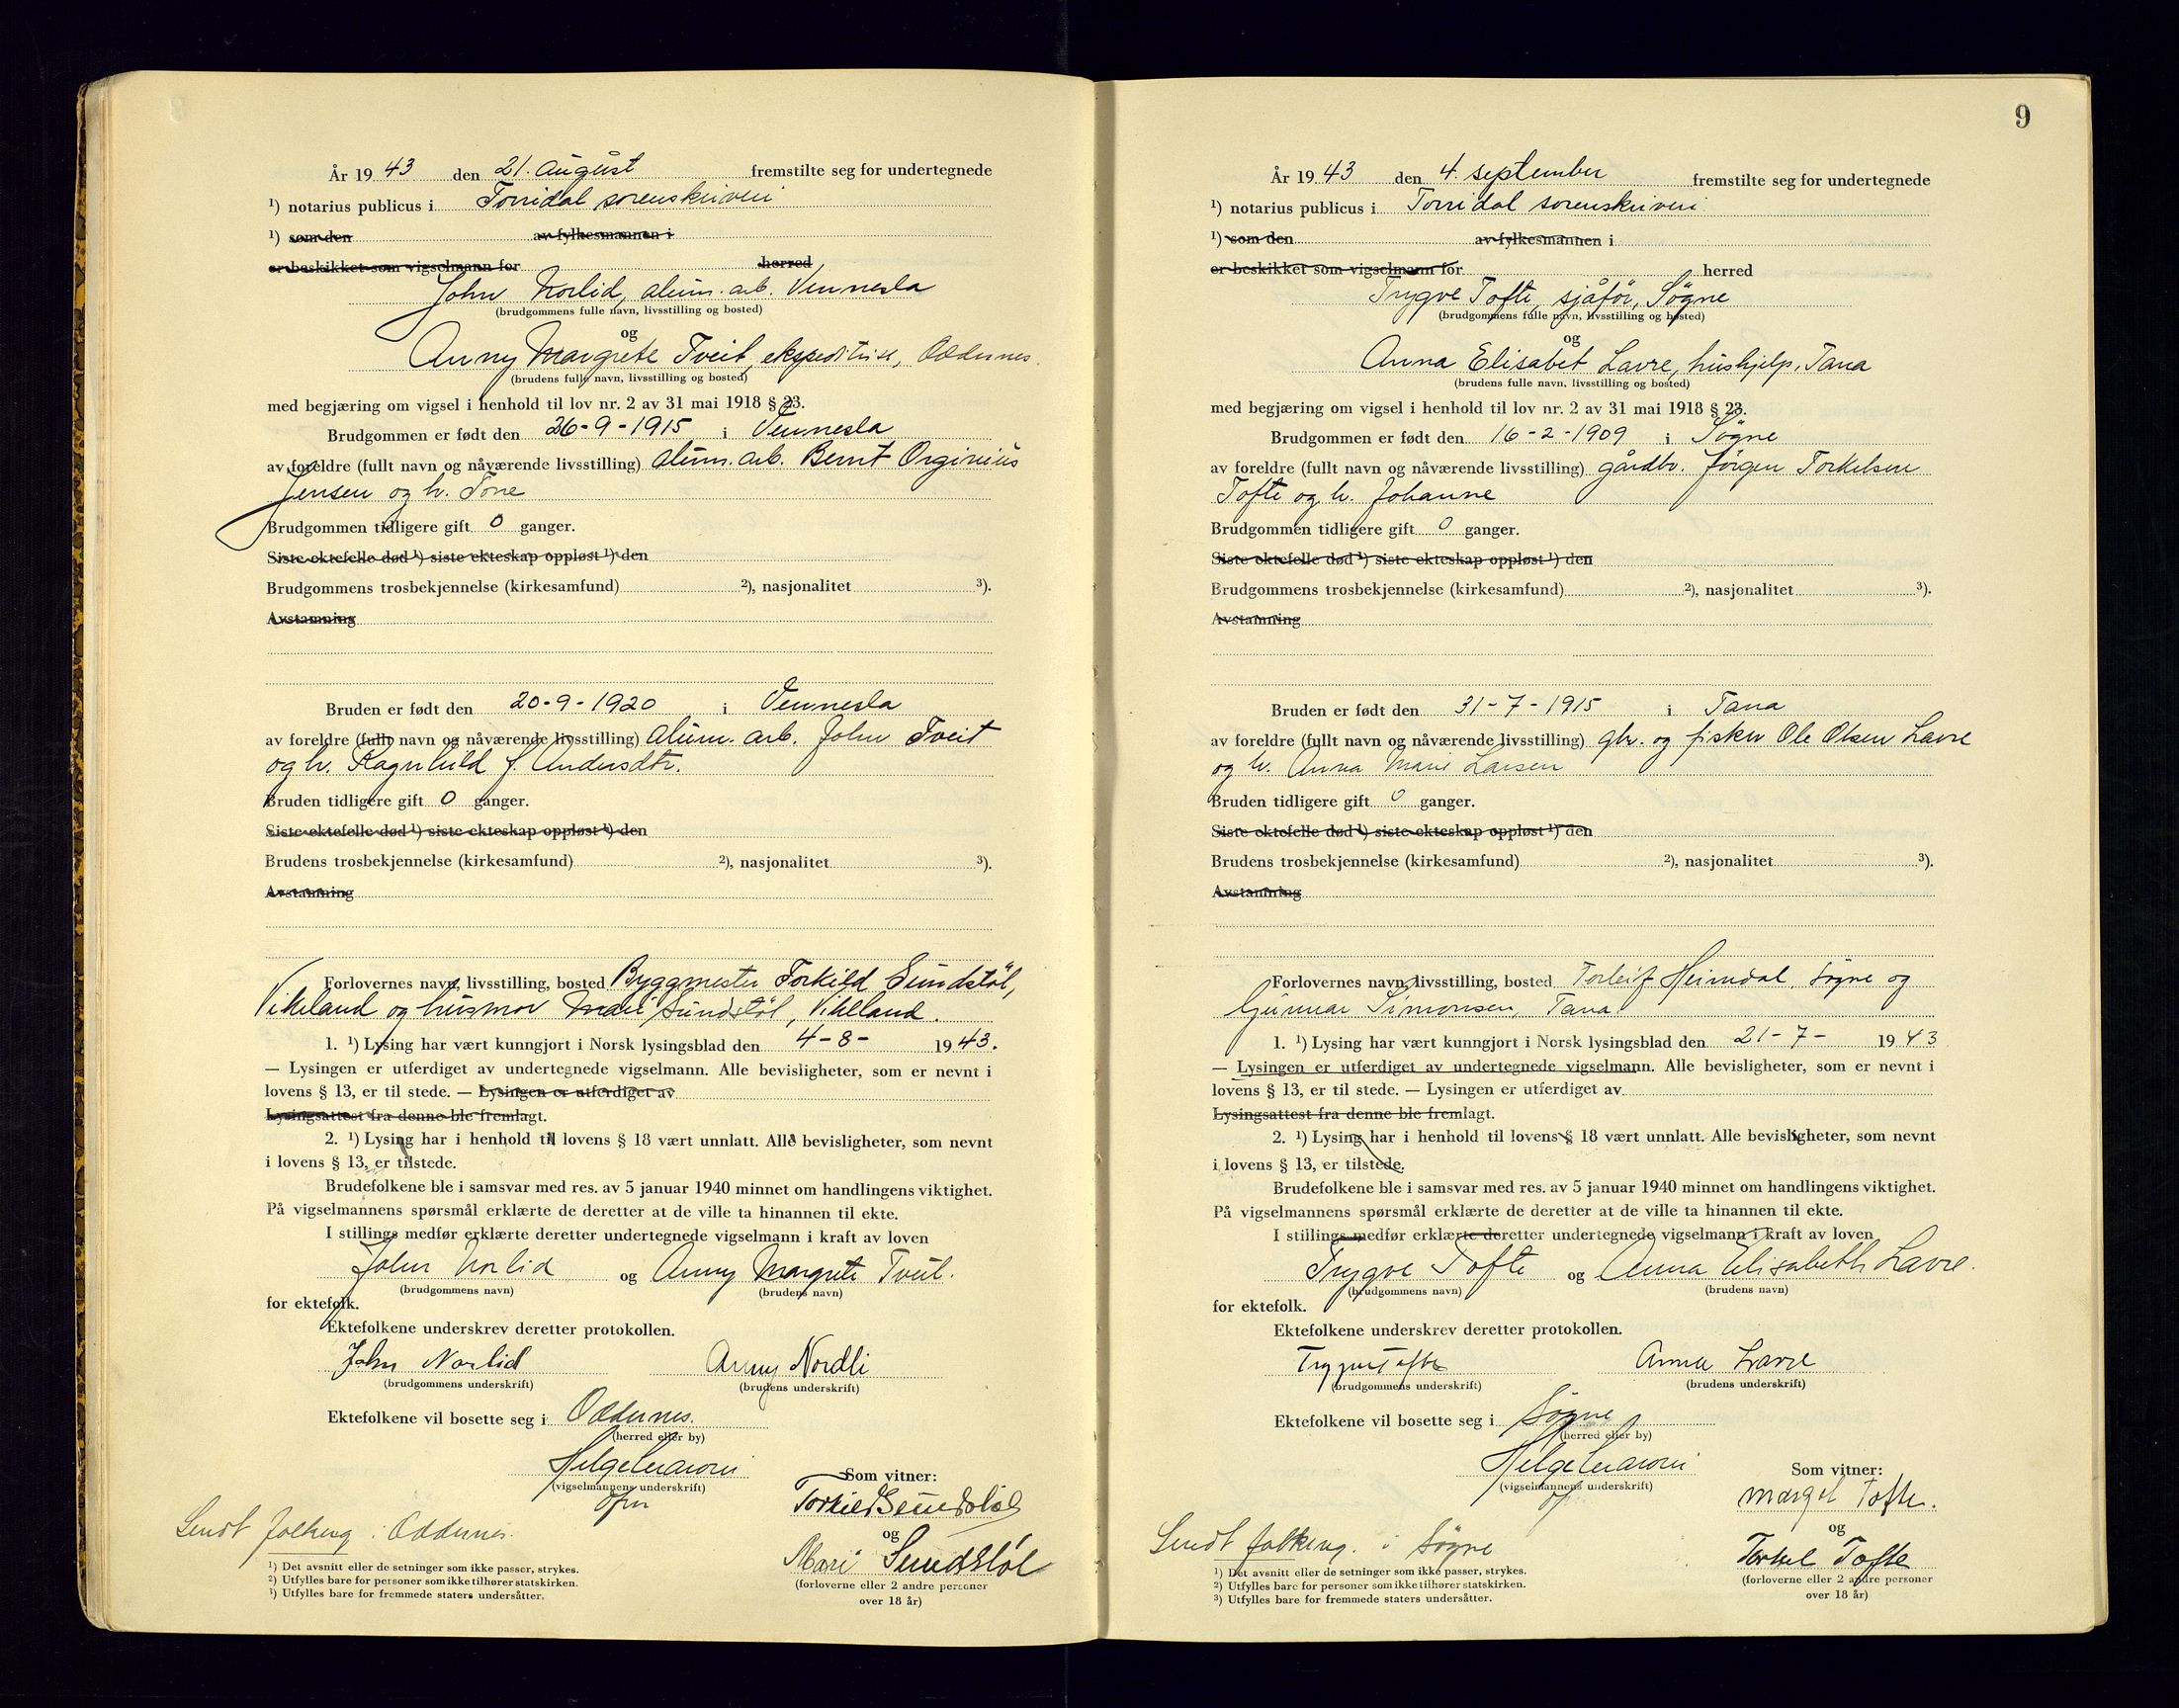 År 19 43 den 21. august fremstilte seg for undertegnede
¹) notarius publicus i Torridal sorenskriveri
¹) som den av fylkesmannen i
er beskikket som vigselmann for herred
John Norlid, alum. arb. Vennesla
(brudgommens fulle navn, livsstilling og bosted)
og
Anny Margrete Tveit, ekspeditrise, Oddernes.
(brudens fulle navn, livsstilling og bosted)
med begjæring om vigsel i henhold til lov nr. 2 av 31 mai 1918 § 23.
Brudgommen er født den 26-9-1915 i Vennesla
av foreldre (fullt navn og nåværende livsstilling) alum. arb. Bernt Orginius
Jensen og h. Tone
Brudgommen tidligere gift 0 ganger.
Siste ektefelle død ¹) siste ekteskap oppløst ¹) den
Brudgommens trosbekjennelse (kirkesamfund) ²), nasjonalitet ³).
Avstamning
Bruden er født den 20-9-1920 i Vennesla
av foreldre (fullt navn og nåværende livsstilling) alum. arb. John Tveit
og h. Ragnhild f. Andersdtr.
Bruden tidligere gift 0 ganger.
Siste ektefelle død ¹) siste ekteskap oppløst ¹) den
Brudens trosbekjennelse (kirkesamfund) ²), nasjonalitet ³).
Avstamning
Forlovernes navn, livsstilling, bosted Byggmester Torkild Sundstöl,
Vikeland og husmor Mari Sundstöl, Vikeland.
1. ¹) Lysing har vært kunngjort i Norsk lysingsblad den 4-8- 19 43.
— Lysingen er utferdiget av undertegnede vigselmann. Alle bevisligheter, som er nevnt i
lovens § 13, er til stede. — Lysingen er utferdiget av
Lysingsattest fra denne ble fremlagt.
2. ¹) Lysing har i henhold til lovens § 18 vært unnlatt. Alle bevisligheter, som nevnt
i lovens § 13, er tilstede.
Brudefolkene ble i samsvar med res. av 5 januar 1940 minnet om handlingens viktighet.
På vigselmannens spørsmål erklærte de deretter at de ville ta hinannen til ekte.
I stillings medfør erklærte deretter undertegnede vigselmann i kraft av loven
John Norlid og Anny Margrete Tveit.
(brudgommens navn) (brudens navn)
for ektefolk.
Ektefolkene underskrev deretter protokollen.
John Norlid Anny Nordli
(brudgommens underskrift) (brudens underskrift)
Ektefolkene vil bosette seg i Oddernes.
(herred eller by)
(vigselmannens underskrift)
Som vitner:
Torkild Sundstöl
og
Mari Sundstöl
(forloverne eller 2 andre personer
over 18 år)
Sendt folkereg. i Oddernes.
¹) Det avsnitt eller de setninger som ikke passer, strykes.
²) Utfylles bare for personer som ikke tilhører statskirken.
³) Utfylles bare for fremmede staters undersåtter.
9
År 19 43 den 4. september fremstilte seg for undertegnede
¹) notarius publicus i Torridal sorenskriveri
¹) som den av fylkesmannen i
er beskikket som vigselmann for herred
Trygve Tofte, sjåför, Søgne
(brudgommens fulle navn, livsstilling og bosted)
og
Anna Elisabet Lavre, hushjelp, Tana
(brudens fulle navn, livsstilling og bosted)
med begjæring om vigsel i henhold til lov nr. 2 av 31 mai 1918 § 23.
Brudgommen er født den 16-2-1909 i Søgne
av foreldre (fullt navn og nåværende livsstilling) gårdbr. Jörgen Torkelsen
Tofte og h. Johanne
Brudgommen tidligere gift 0 ganger.
Siste ektefelle død ¹) siste ekteskap oppløst ¹) den
Brudgommens trosbekjennelse (kirkesamfund) ²), nasjonalitet ³).
Avstamning
Bruden er født den 31-7-1915 i Tana
av foreldre (fullt navn og nåværende livsstilling) gbr. og fisker Ole Olsen Lavre
og h. Anna Marie Larsen
Bruden tidligere gift 0 ganger.
Siste ektefelle død ¹) siste ekteskap oppløst ¹) den
Brudens trosbekjennelse (kirkesamfund) ²), nasjonalitet ³).
Avstamning
Forlovernes navn, livsstilling, bosted Torleif Heimdal, Søgne og
Gunnar Simonsen, Tana
1. ¹) Lysing har vært kunngjort i Norsk lysingsblad den 21-7- 19 43
— Lysingen er utferdiget av undertegnede vigselmann. Alle bevisligheter, som er nevnt i
lovens § 13, er til stede. — Lysingen er utferdiget av
Lysingsattest fra denne ble fremlagt.
2. ¹) Lysing har i henhold til lovens § 18 vært unnlatt. Alle bevisligheter, som nevnt
i lovens § 13, er tilstede.
Brudefolkene ble i samsvar med res. av 5 januar 1940 minnet om handlingens viktighet.
På vigselmannens spørsmål erklærte de deretter at de ville ta hinannen til ekte.
I stillings medfør erklærte deretter undertegnede vigselmann i kraft av loven
Trygve Tofte og Anna Elisabeth Lavre.
(brudgommens navn) (brudens navn)
for ektefolk.
Ektefolkene underskrev deretter protokollen.
Trygve Tofte Anna Lavre
(brudgommens underskrift) (brudens underskrift)
Ektefolkene vil bosette seg i Søgne
(herred eller by)
(vigselmannens underskrift)
Som vitner:
Margit Tofte.
og
Torkel Tofte
(forloverne eller 2 andre personer
over 18 år)
Sendt folkereg. i Søgne
¹) Det avsnitt eller de setninger som ikke passer, strykes.
²) Utfylles bare for personer som ikke tilhører statskirken.
³) Utfylles bare for fremmede staters undersåtter.